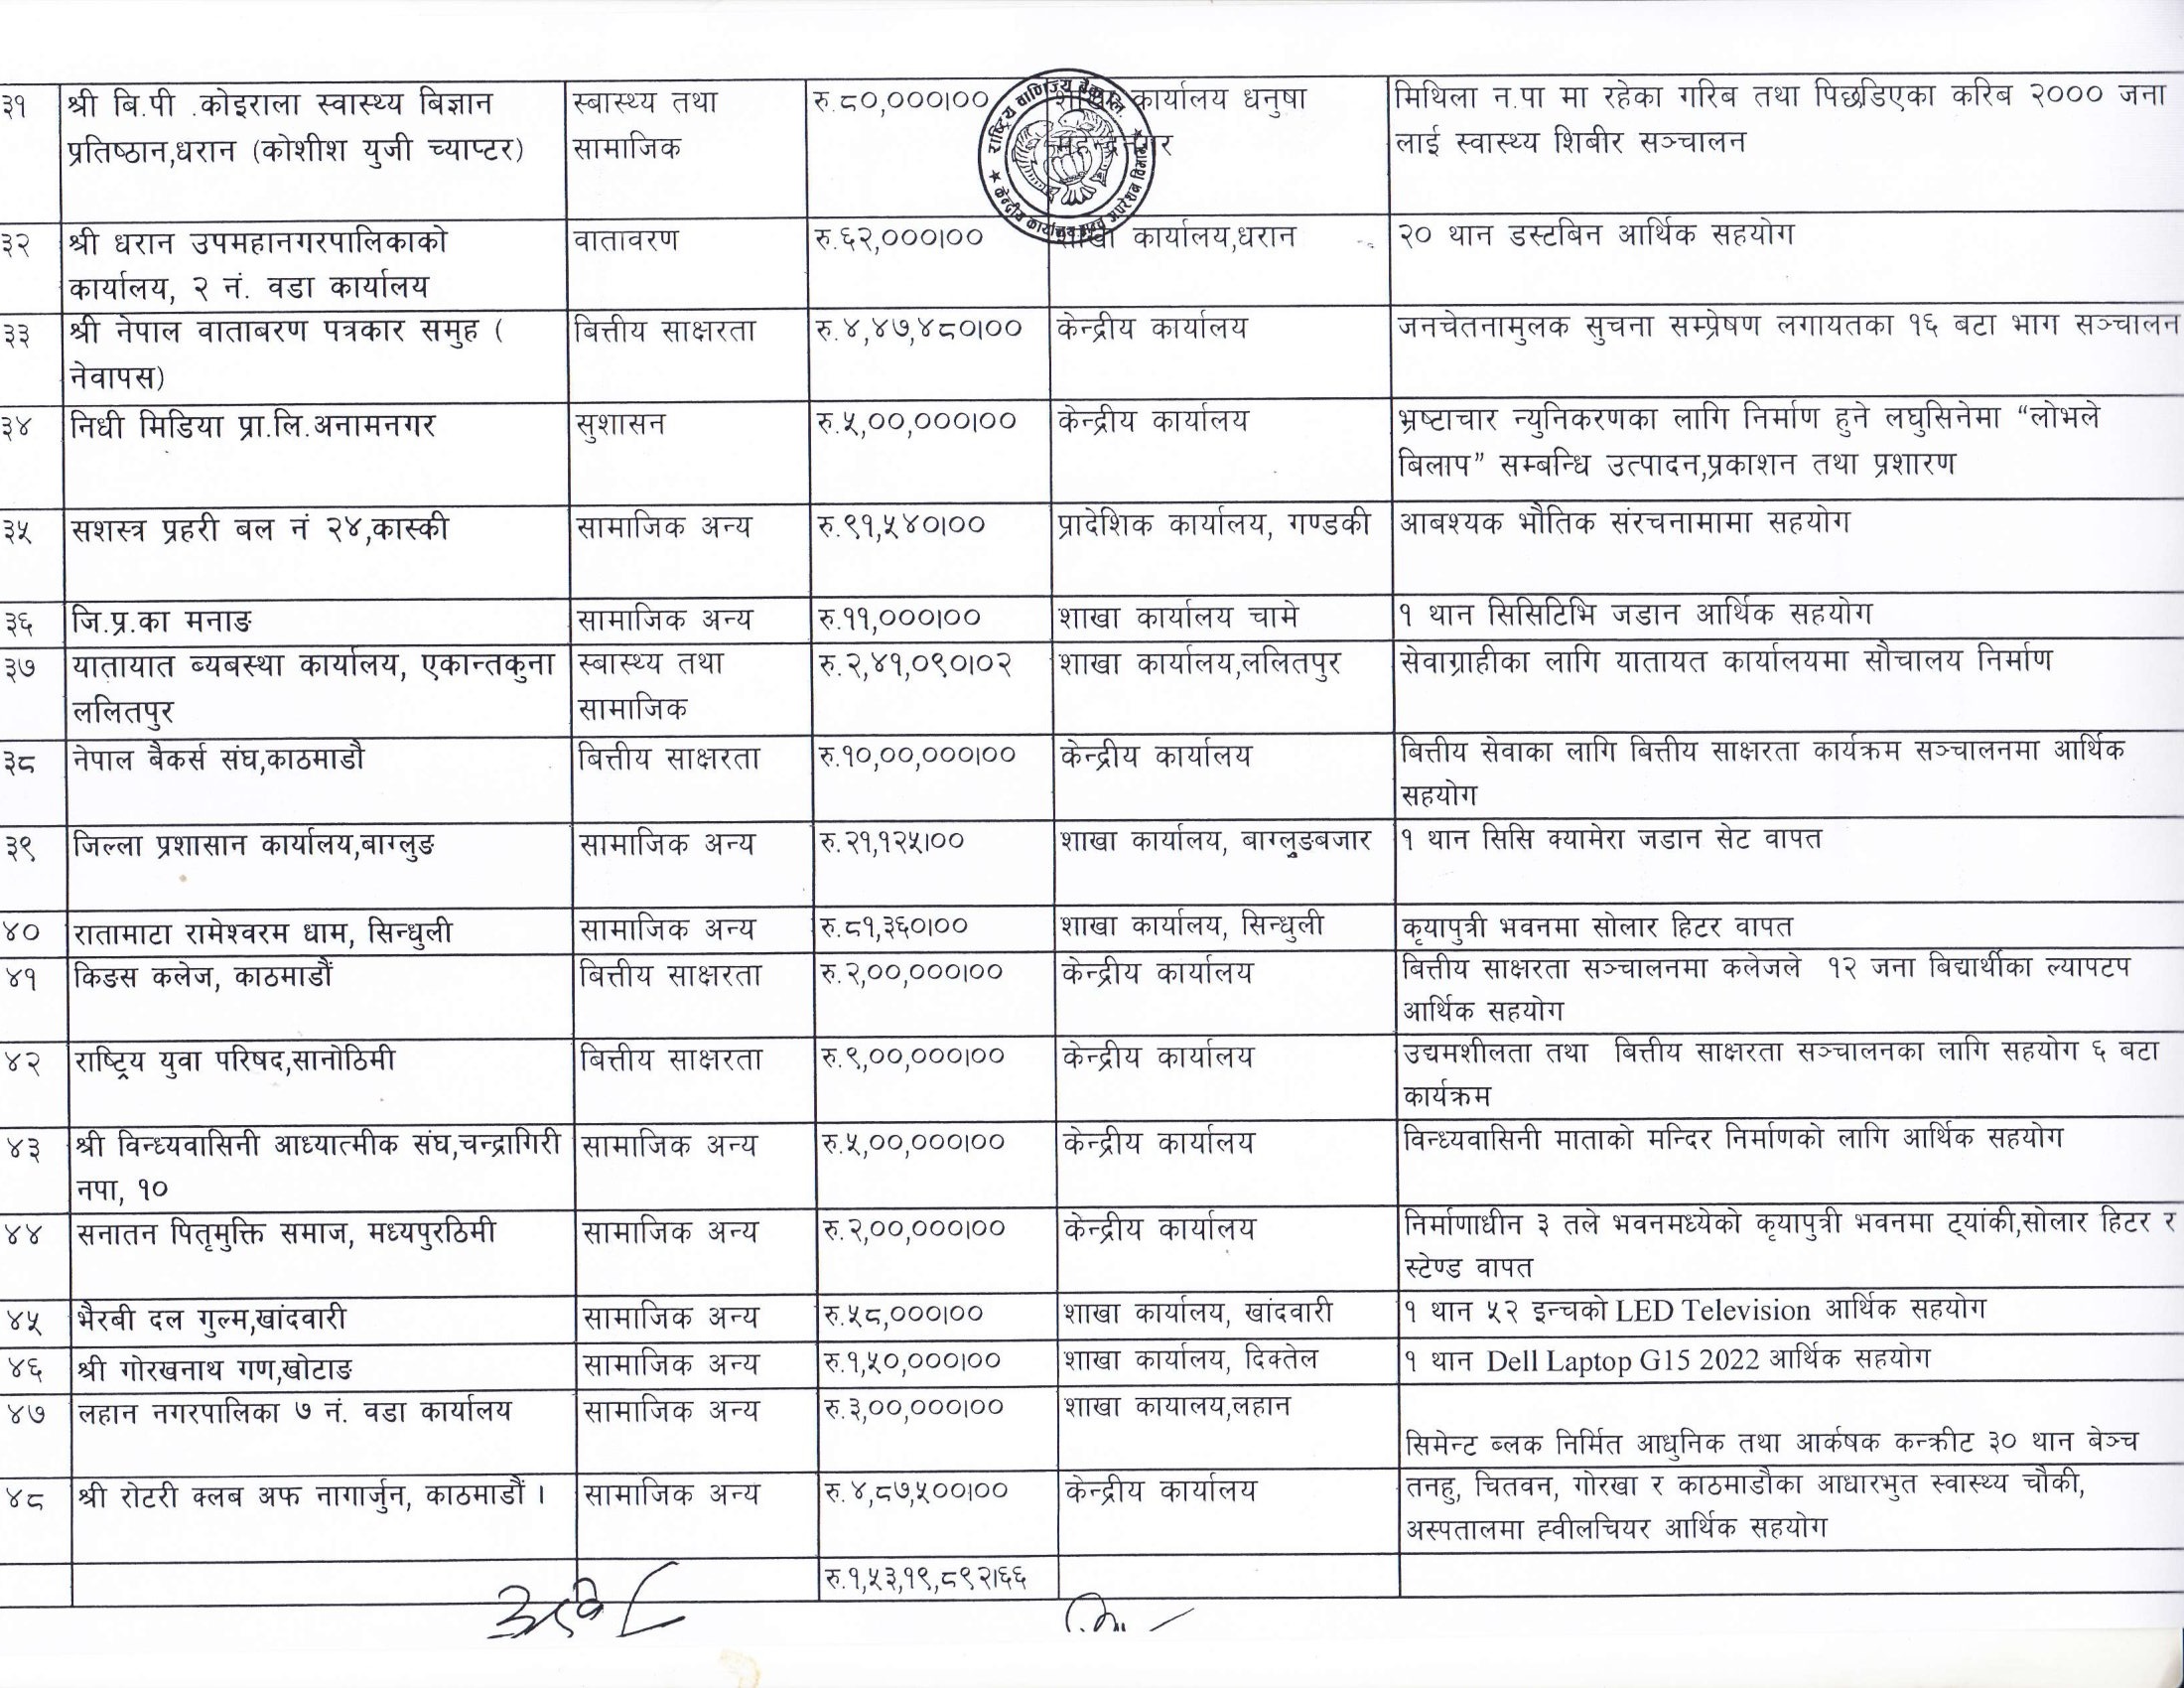 ३१ श्री बि.पी .कोइराला स्वास्थ्य बिज्ञान स्बास्थ्य तथा रु.८०,०००।०० शाखा कार्यालय धनुषा मिथिला न.पा मा रहेका गरिब तथा पिछडिएका करिब २००० जना
प्रतिष्ठान,धरान (कोशीश युजी च्याप्टर) सामाजिक महेन्द्रनगर लाई स्वास्थ्य शिबीर सञ्चालन
राष्ट्रिय वाणिज्य बैंक लि.
३२ श्री धरान उपमहानगरपालिकाको वातावरण रु.६२,०००।०० शाखा कार्यालय,धरान २० थान डस्टबिन आर्थिक सहयोग
कार्यालय, २ नं. वडा कार्यालय
३३ श्री नेपाल वाताबरण पत्रकार समुह ( बित्तीय साक्षरता रु.४,४७,४८०।०० केन्द्रीय कार्यालय जनचेतनामुलक सुचना सम्प्रेषण लगायतका १६ बटा भाग सञ्चालन
नेवापस)
३४ निधी मिडिया प्रा.लि.अनामनगर सुशासन रु.५,००,०००।०० केन्द्रीय कार्यालय भ्रष्टाचार न्युनिकरणका लागि निर्माण हुने लघुसिनेमा “लोभले
बिलाप” सम्बन्धि उत्पादन,प्रकाशन तथा प्रशारण
३५ सशस्त्र प्रहरी बल नं २४,कास्की सामाजिक अन्य रु.९१,५४०।०० प्रादेशिक कार्यालय, गण्डकी आबश्यक भौतिक संरचनामामा सहयोग
३६ जि.प्र.का मनाङ सामाजिक अन्य रु.११,०००।०० शाखा कार्यालय चामे १ थान सिसिटिभि जडान आर्थिक सहयोग
३७ यातायात ब्यबस्था कार्यालय, एकान्तकुना स्बास्थ्य तथा रु.२,४१,०९०।०२ शाखा कार्यालय,ललितपुर सेवाग्राहीका लागि यातायत कार्यालयमा सौचालय निर्माण
ललितपुर सामाजिक
३८ नेपाल बैकर्स संघ,काठमाडौ बित्तीय साक्षरता रु.१०,००,०००।०० केन्द्रीय कार्यालय बित्तीय सेवाका लागि बित्तीय साक्षरता कार्यक्रम सञ्चालनमा आर्थिक
सहयोग
३९ जिल्ला प्रशासान कार्यालय,बाग्लुङ सामाजिक अन्य रु.२१,१२५।०० शाखा कार्यालय, बाग्लुङबजार १ थान सिसि क्यामेरा जडान सेट वापत
४० रातामाटा रामेश्वरम धाम, सिन्धुली सामाजिक अन्य रु.८१,३६०।०० शाखा कार्यालय, सिन्धुली कृयापुत्री भवनमा सोलार हिटर वापत
४१ किङस कलेज, काठमाडौं बित्तीय साक्षरता रु.२,००,०००।०० केन्द्रीय कार्यालय बित्तीय साक्षरता सञ्चालनमा कलेजले १२ जना बिद्यार्थीका ल्यापटप
आर्थिक सहयोग
४२ राष्ट्रिय युवा परिषद,सानोठिमी बित्तीय साक्षरता रु.९,००,०००।०० केन्द्रीय कार्यालय उद्यमशीलता तथा बित्तीय साक्षरता सञ्चालनका लागि सहयोग ६ बटा
कार्यक्रम
४३ श्री विन्ध्यवासिनी आध्यात्मीक संघ,चन्द्रागिरी सामाजिक अन्य रु.५,००,०००।०० केन्द्रीय कार्यालय विन्ध्यवासिनी माताको मन्दिर निर्माणको लागि आर्थिक सहयोग
नपा, १०
४४ सनातन पितृमुक्ति समाज, मध्यपुरठिमी सामाजिक अन्य रु.२,००,०००।०० केन्द्रीय कार्यालय निर्माणाधीन ३ तले भवनमध्येको कृयापुत्री भवनमा ट्यांकी,सोलार हिटर र
स्टेण्ड वापत
४५ भैरबी दल गुल्म,खांदवारी सामाजिक अन्य रु.५८,०००।०० शाखा कार्यालय, खांदवारी १ थान ५२ इन्चको LED Television आर्थिक सहयोग
४६ श्री गोरखनाथ गण,खोटाङ सामाजिक अन्य रु.१,५०,०००।०० शाखा कार्यालय, दिक्तेल १ थान Dell Laptop G15 2022 आर्थिक सहयोग
४७ लहान नगरपालिका ७ नं. वडा कार्यालय सामाजिक अन्य रु.३,००,०००।०० शाखा कायालय,लहान
सिमेन्ट ब्लक निर्मित आधुनिक तथा आर्कषक कन्क्रीट ३० थान बेञ्च
४८ श्री रोटरी क्लब अफ नागार्जुन, काठमाडौं । सामाजिक अन्य रु.४,८७,५००।०० केन्द्रीय कार्यालय तनहु, चितवन, गोरखा र काठमाडौका आधारभुत स्वास्थ्य चौकी,
अस्पतालमा ह्वीलचियर आर्थिक सहयोग
रु.१,५३,१९,८९२।६६